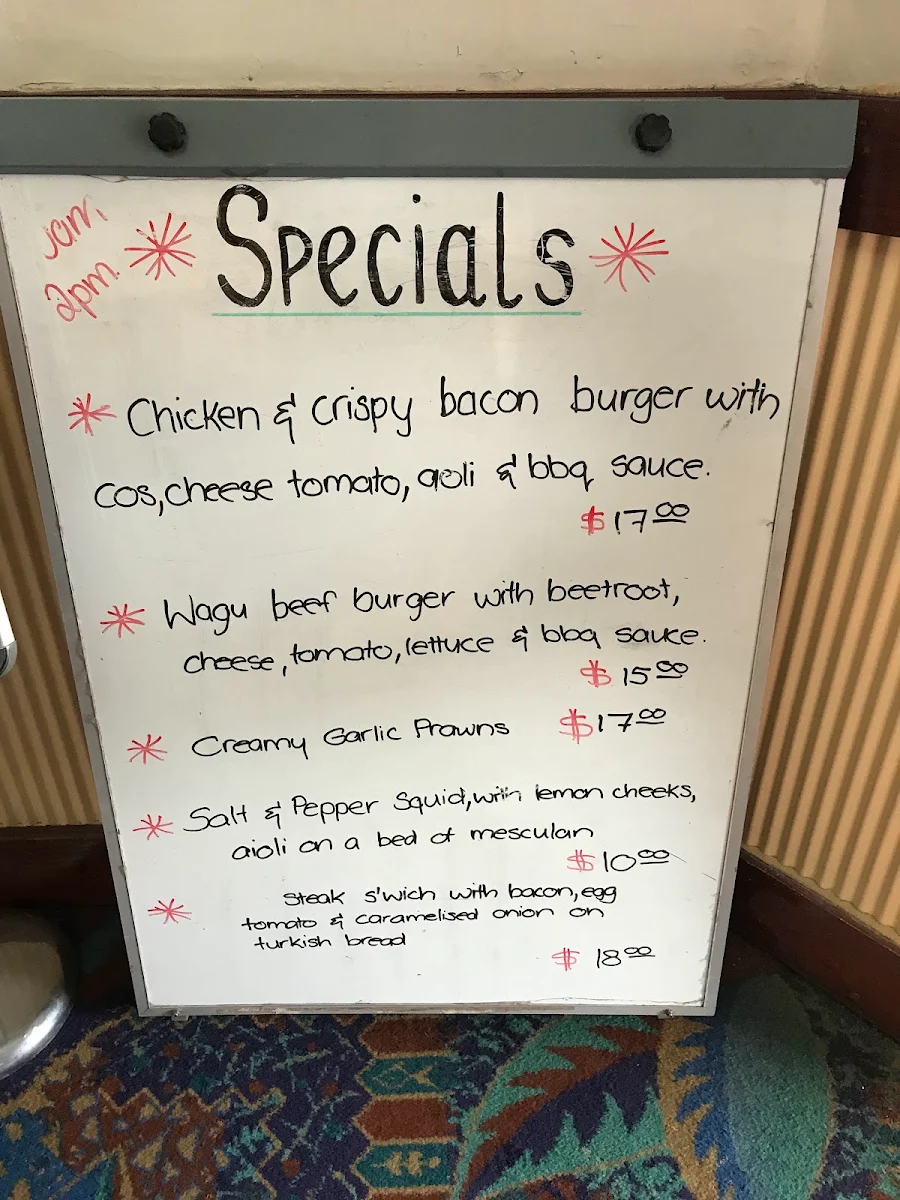 Specials
2pm
Chicken & crispy bacon burger with
cos, cheese tomato, aoli & bbq sauce.
$17.00
Wagu beef burger with beetroot,
cheese, tomato, lettuce & bbq sauce.
$15.00
Creamy Garlic Prawns $17.00
Salt & Pepper Squid, with lemon cheeks,
aioli on a bed of mesculan
$10.00
Steak s'wich with bacon, egg
tomato & caramelised onion on
turkish bread
$18.00